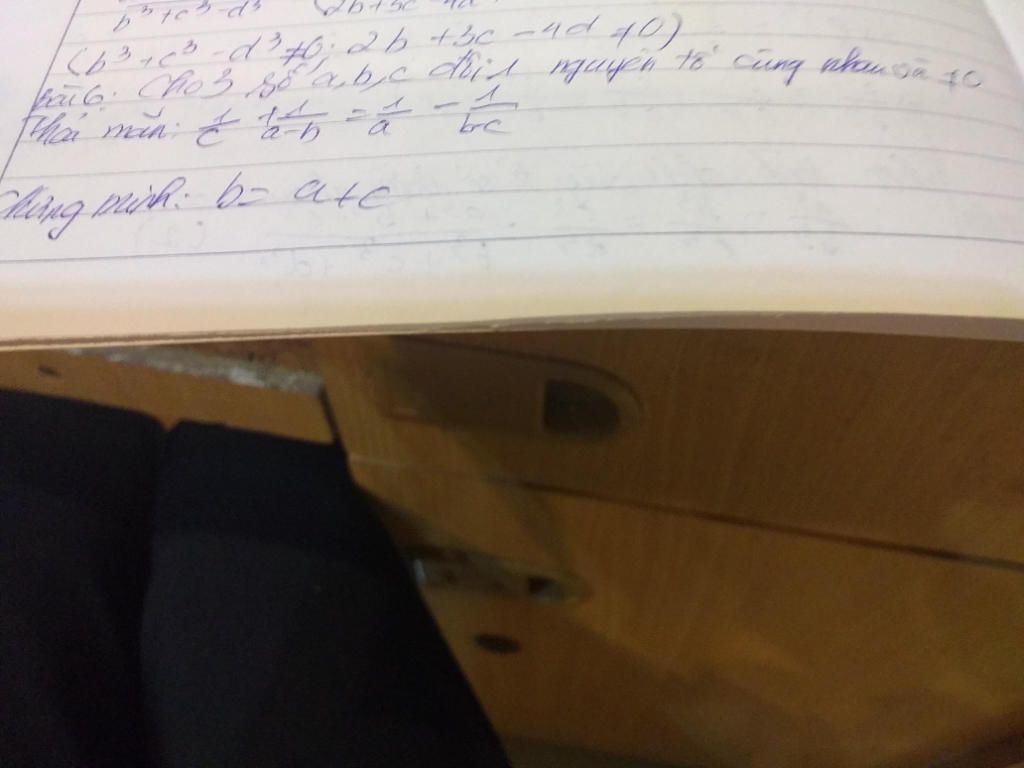 b³+c³-d³ (2b+3c-4d
(b³+c³-d³≠0; 2b+3c-4d≠0)
Bài 6: Cho 3 số a,b,c đôi 1 nguyên tố cùng nhau và ≠0
Thỏa mãn: 1/c + 1/a-b = 1/a - 1/b-c
Chứng minh: b= a+c